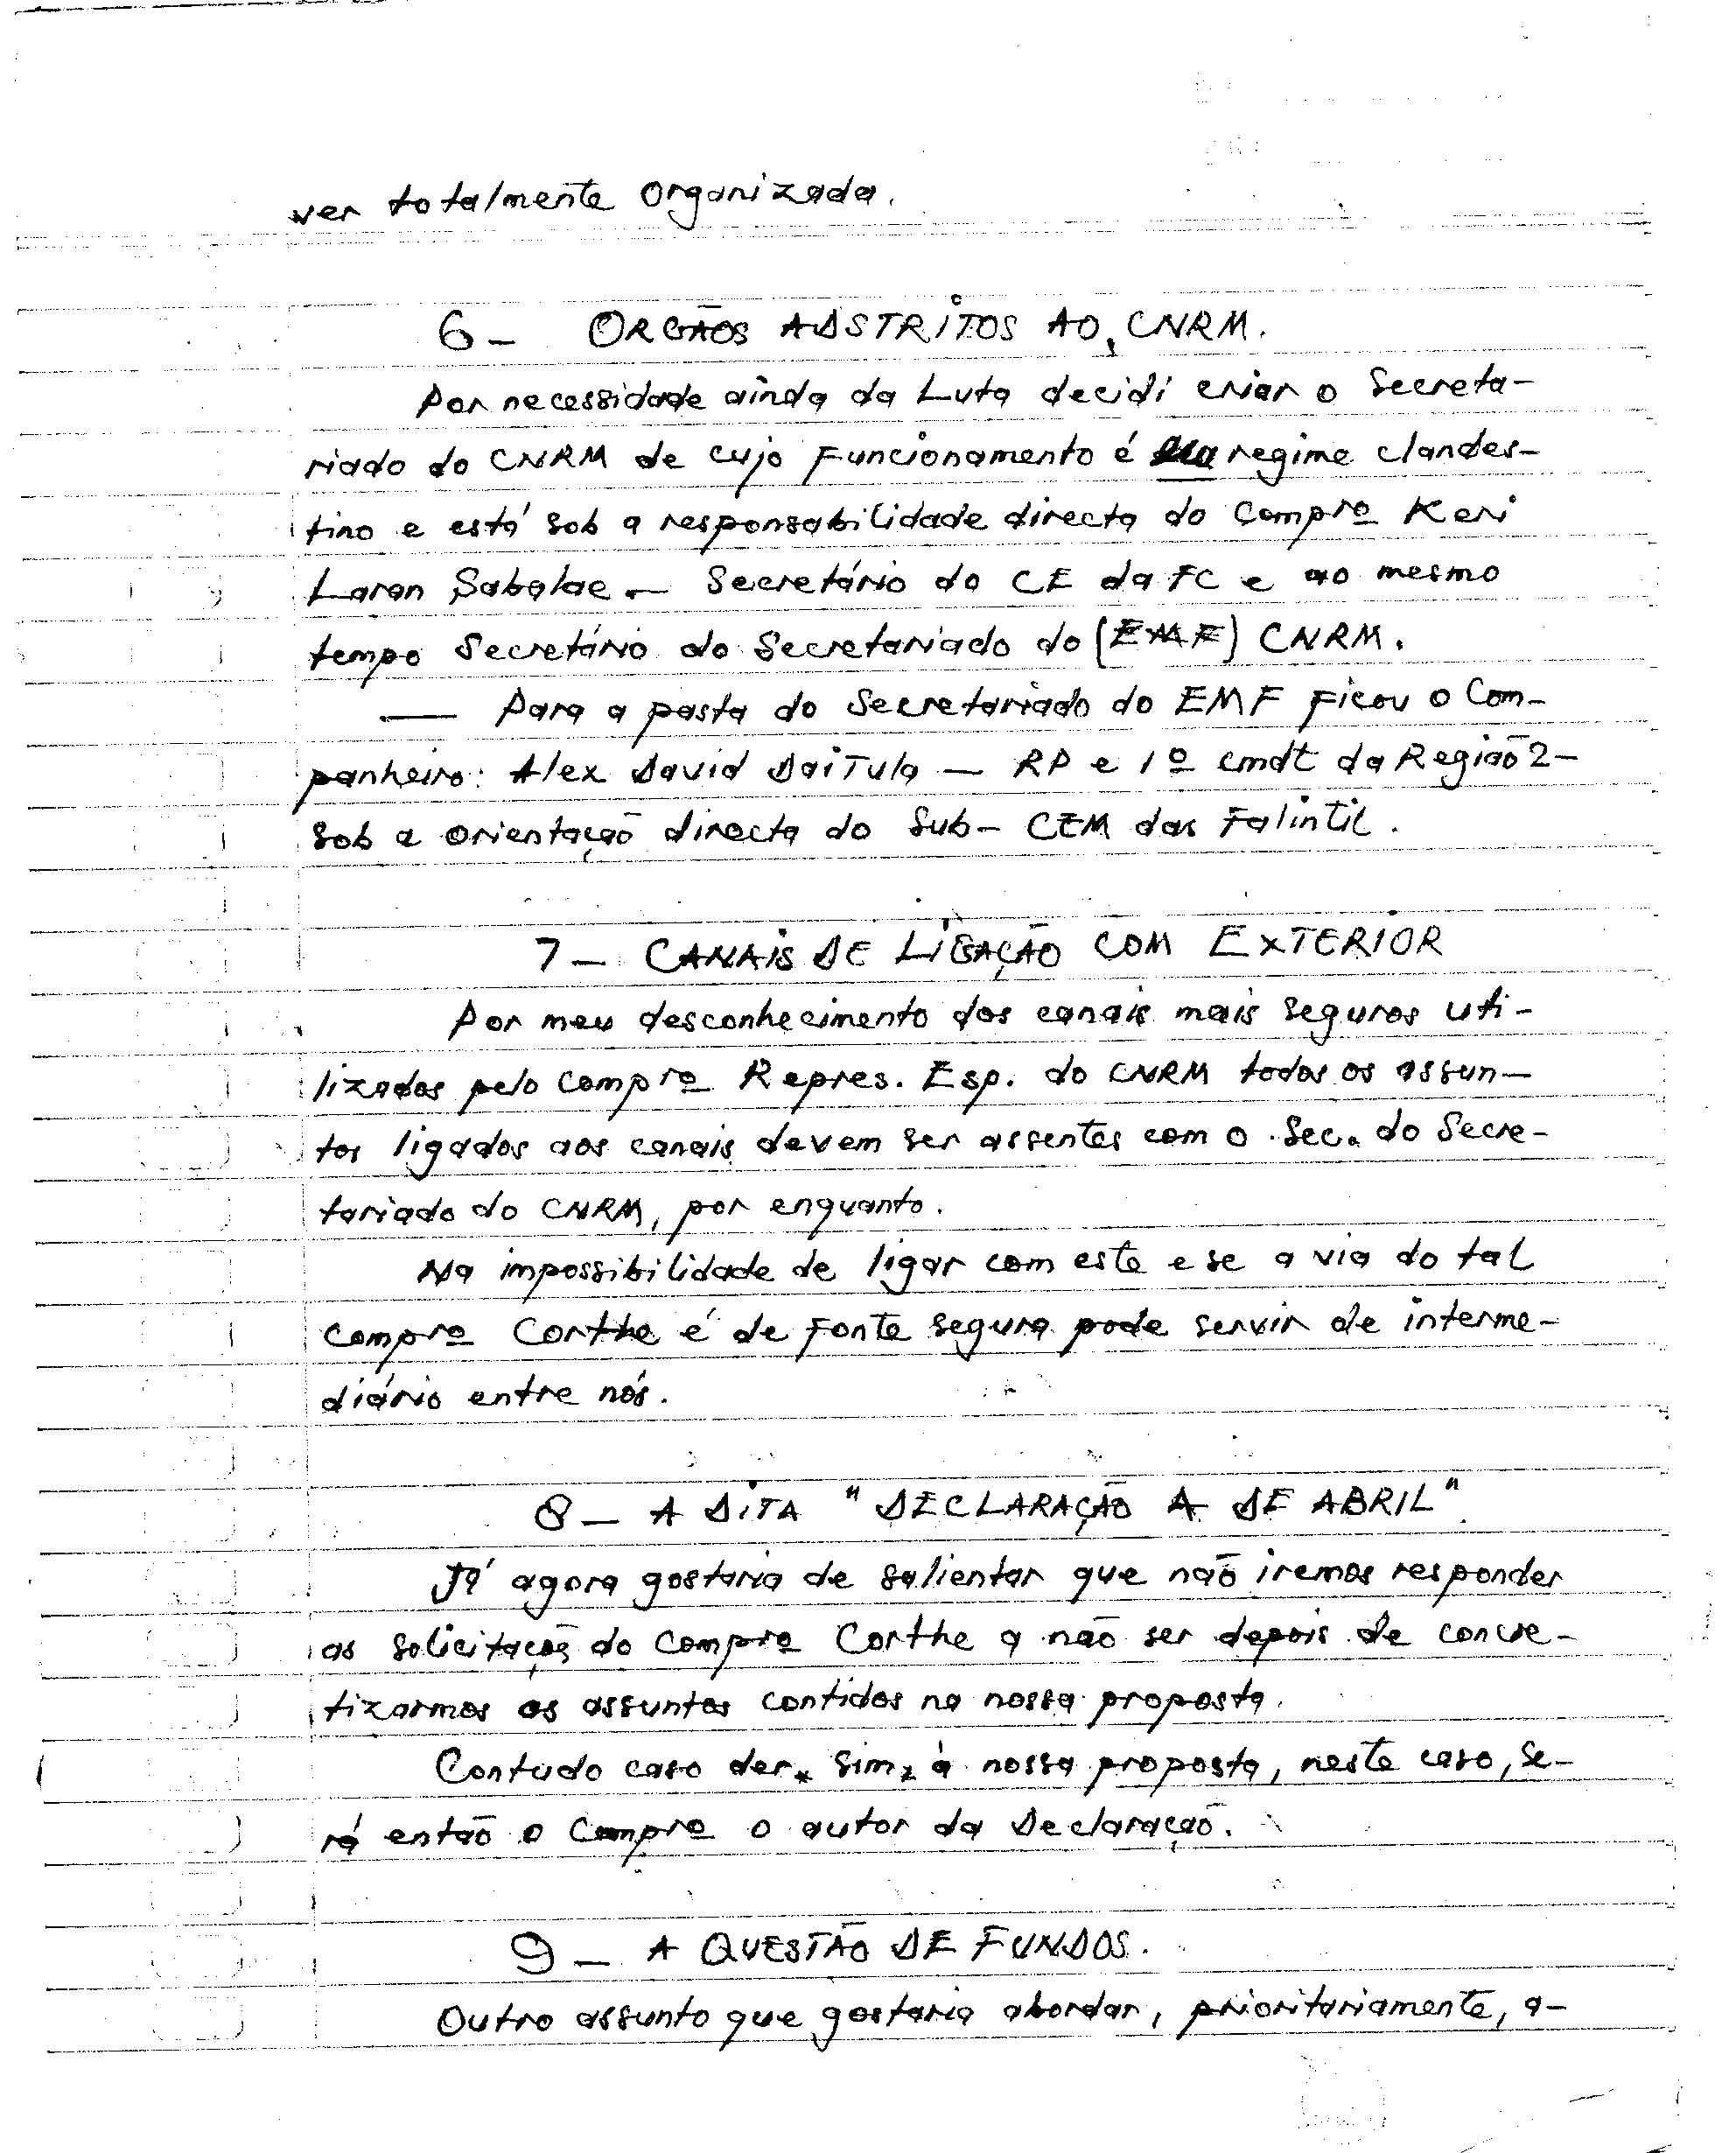 ver totalmente organizada.
6 - ORGÃOS ADSTRITOS AO CNRM.
Por necessidade ainda da Luta decidi criar o Secreta-
riado do CNRM de cujo Funcionamento é em regime clandes-
tino e está sob a responsabilidade directa do Compro Keri
Laran Sabalae - Secretário do CE da FC e ao mesmo
tempo Secretário do Secretariado do (EMF) CNRM.
— Para a pasta do Secretariado do EMF ficou o Com-
panheiro: Alex David DaiTula — RP e 1º cmdt da Região 2-
sob a orientação directa do Sub- CEM das Falintil.
7 - CANAIS DE LIGAÇÃO COM EXTERIOR
Por meu desconhecimento dos canais mais seguros uti-
lizados pelo Compro Repres. Esp. do CNRM todos os assun-
tos ligados aos canais devem ser assentes com o Sec. do Secre-
tariado do CNRM, por enquanto.
Na impossibilidade de ligar com este e se a via do tal
Compro Corthe é de fonte segura pode servir de interme-
diário entre nós.
8 - A DITA "DECLARAÇÃO A DE ABRIL"
Já agora gostaria de salientar que não iremos responder
as solicitaçõs do Compro Corthe a não ser depois de concre-
tizarmos os assuntos contidos na nossa proposta.
Contudo caso der sim à nossa proposta, neste caso, se-
rá então o Compro o autor da Declaração.
9 - A QUESTÃO DE FUNDOS.
Outro assunto que gostaria abordar, prioritariamente, a-